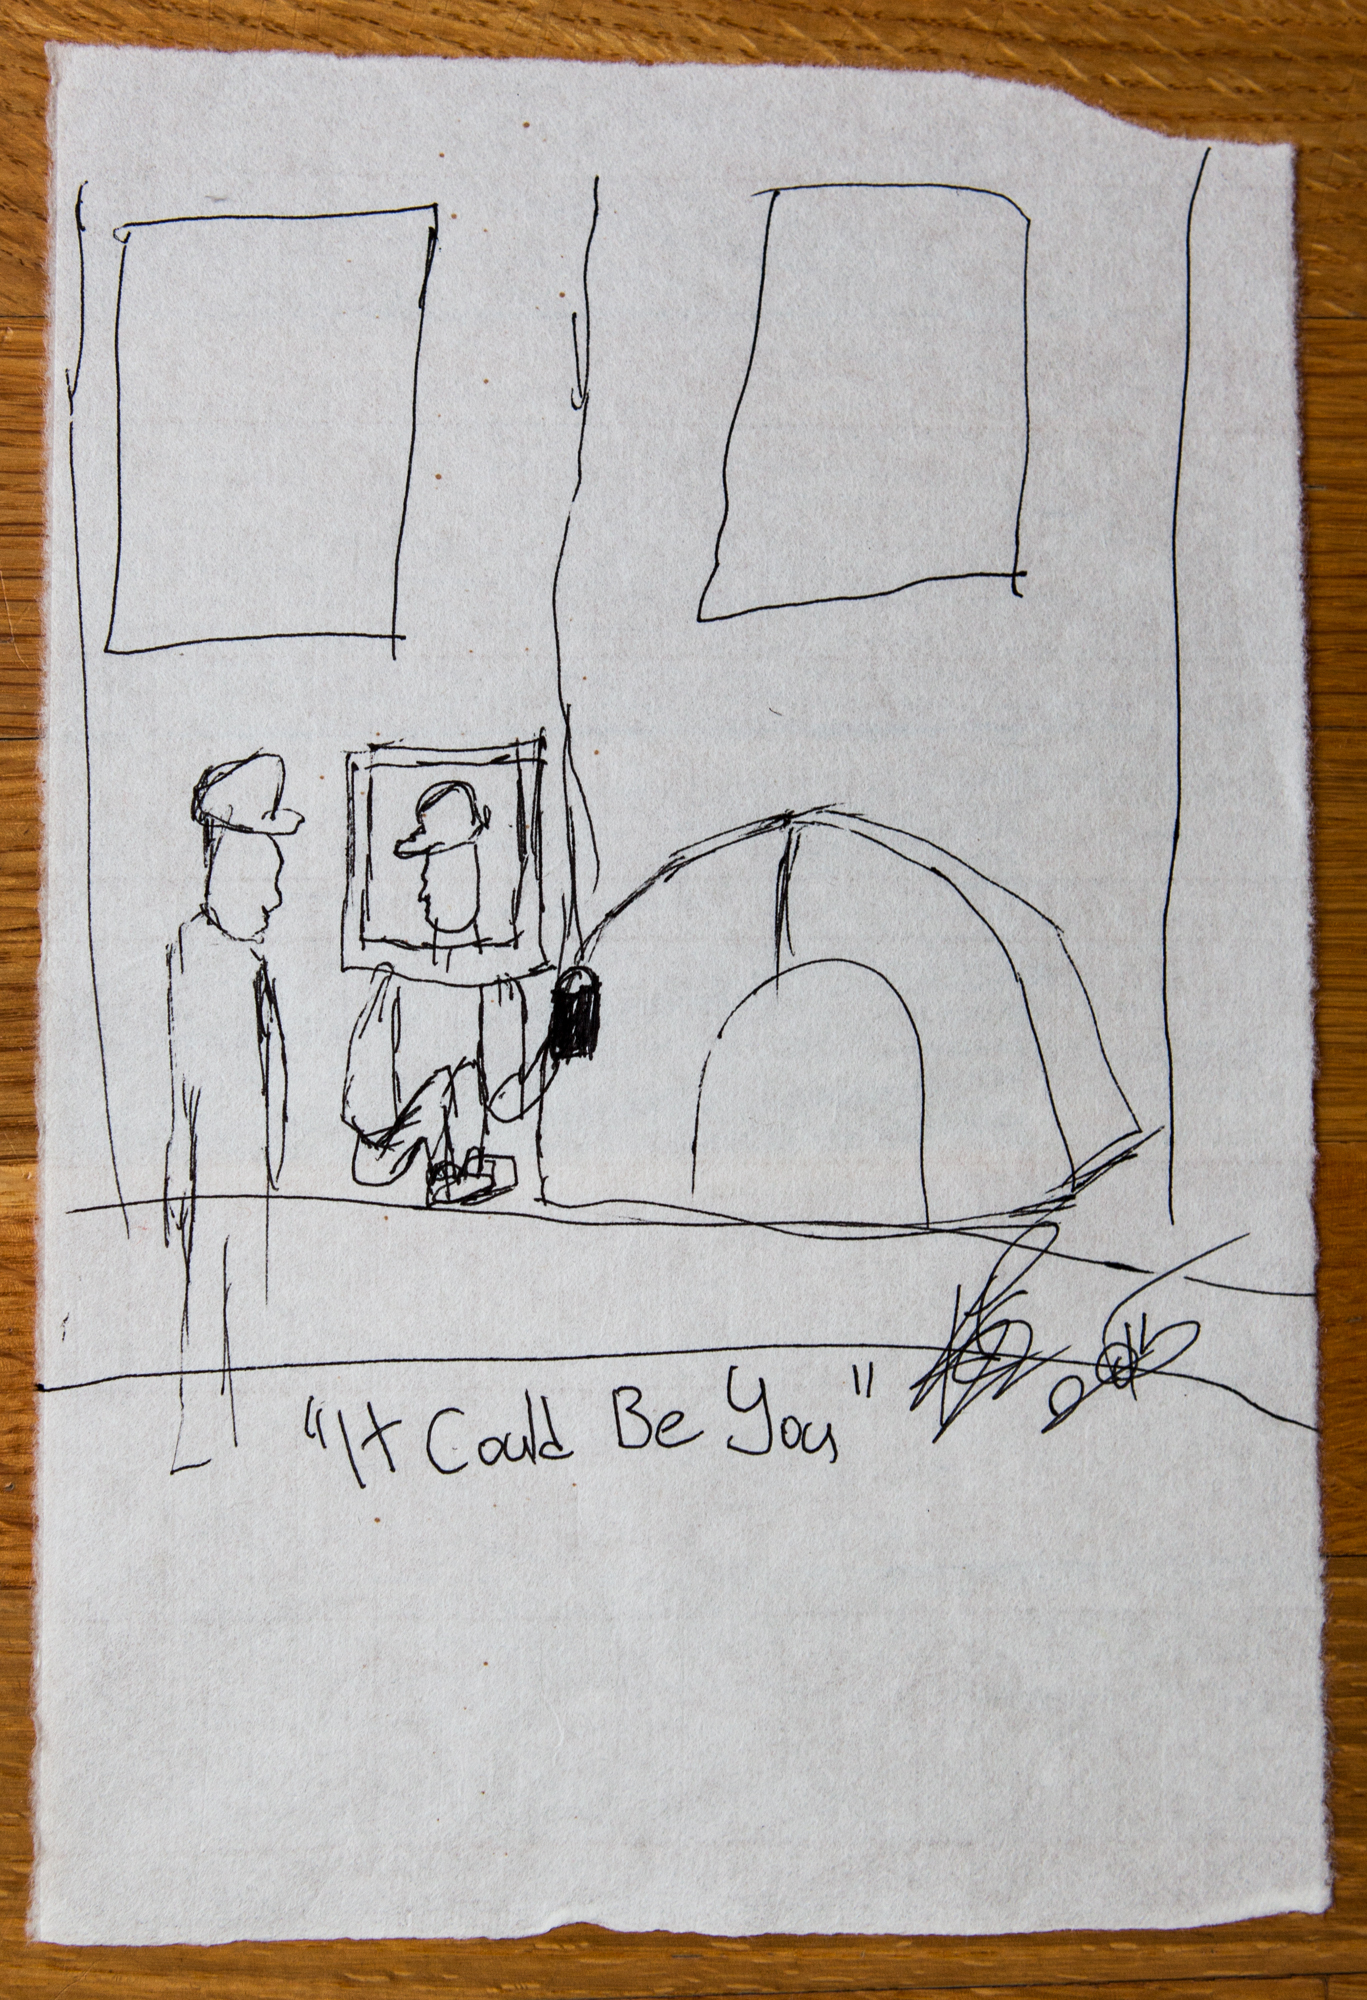 "It Could Be You"